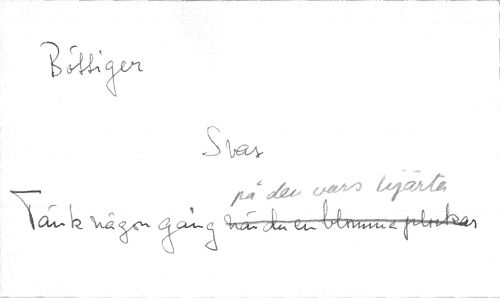 Böttiger
Svar
på den vars hjärta
Tänk någon gång när du en blomma plockar